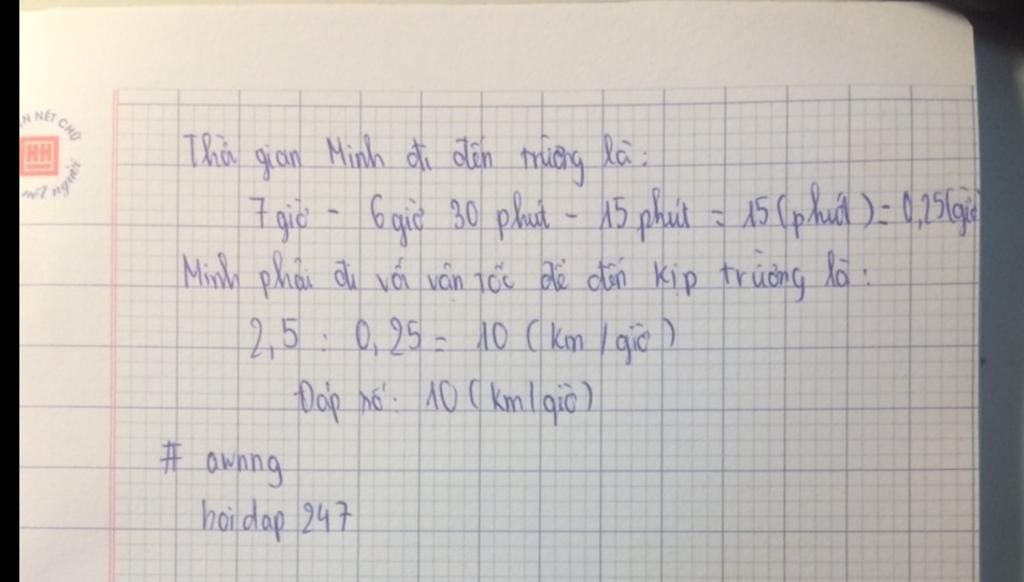 N NÉT CHỮ
HH
một người
Thời gian Minh đi đến trường là:
7 giờ - 6 giờ 30 phút - 15 phút = 15 (phút) = 0,25 (giờ
Minh phải đi với vận tốc để đến kịp trường là:
2,5 : 0,25 = 10 (km / giờ)
Đáp số: 10 (km/giờ)
# awnng
hoidap 247